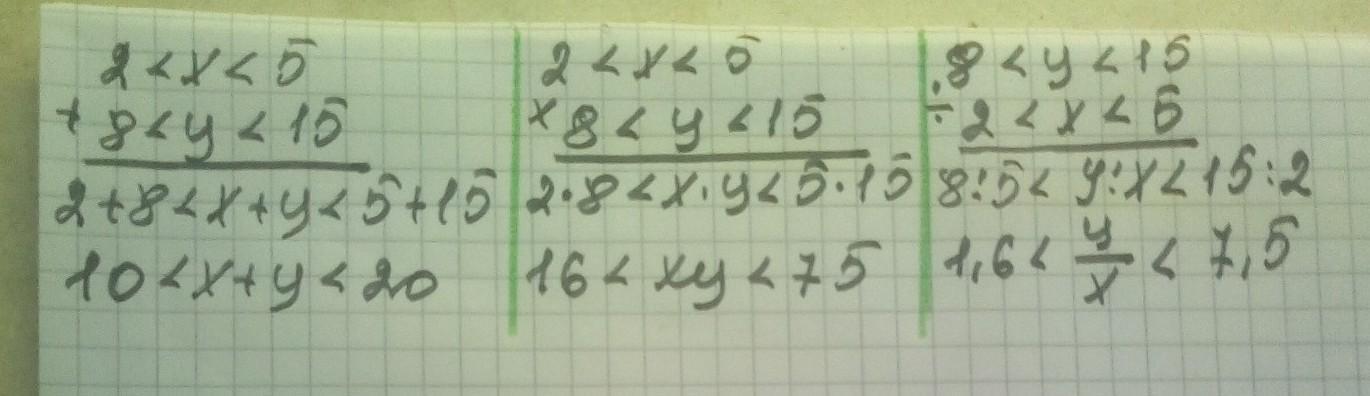 2 < x < 5
+ 8 < y < 15
2+8 < x+y < 5+15
10 < x+y < 20
2 < x < 5
× 8 < y < 15
2·8 < x·y < 5·15
16 < xy < 75
8 < y < 15
÷ 2 < x < 5
8:5 < y:x < 15:2
1,6 < y/x < 7,5